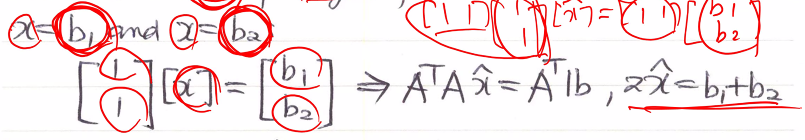 x=b₁ and x=b₂ [1 1][1 1][x̂]=[1 1][b₁ b₂]
[1 1][x]=[b₁ b₂] ⇒ AᵀAx̂=Aᵀb, 2x̂=b₁+b₂